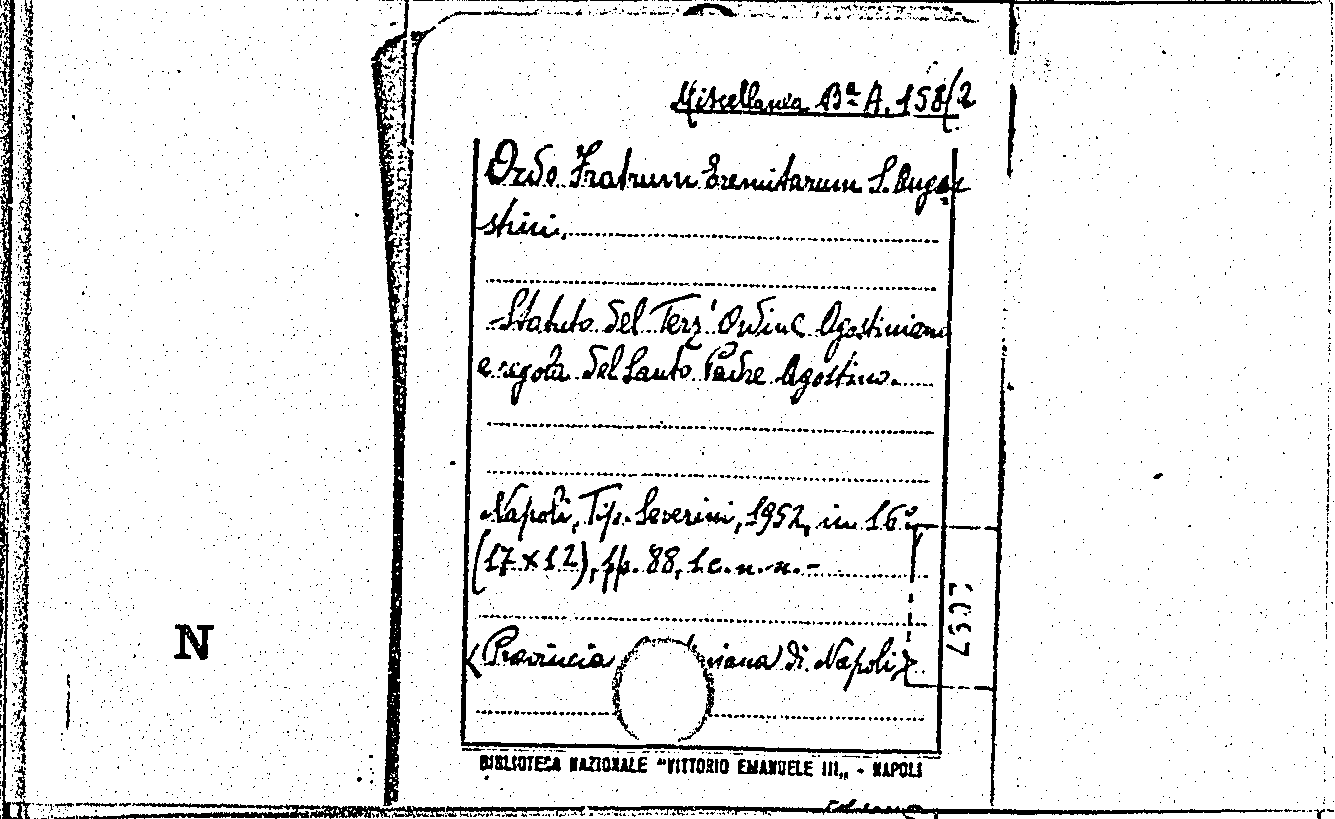 Miscellanea Bª A. 158/2
Ordo Fratrum Eremitarum S. Augu-
stini.
Statuto del Terz' Ordine Agostiniano
e regola del Santo Padre Agostino.
Napoli, Tip. Severini, 1952, in 16º
(17 x 12), pp. 88, 1 c. n. n. -
N
(Provincia niana di Napoli)
BIBLIOTECA NAZIONALE "VITTORIO EMANUELE III„ - NAPOLI